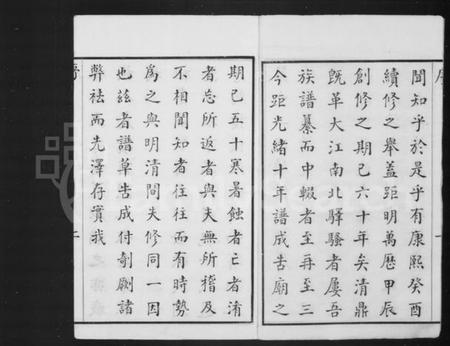 聞知乎於是乎有康熙癸酉
續修之舉蓋距明萬歷甲辰
創修之期已六十年矣清鼎
既革大江南北驛騷者屢吾
族譜纂而中輟者至再至三
今距光緒十年譜成告廟之
期已五十寒暑蝕者亡者淆
者忘所返者與夫無所稽及
不相聞知者往往而有時勢
為之與明清間夫修同一因
也茲者譜草告成付剞劂諸
弊祛而先澤存實我